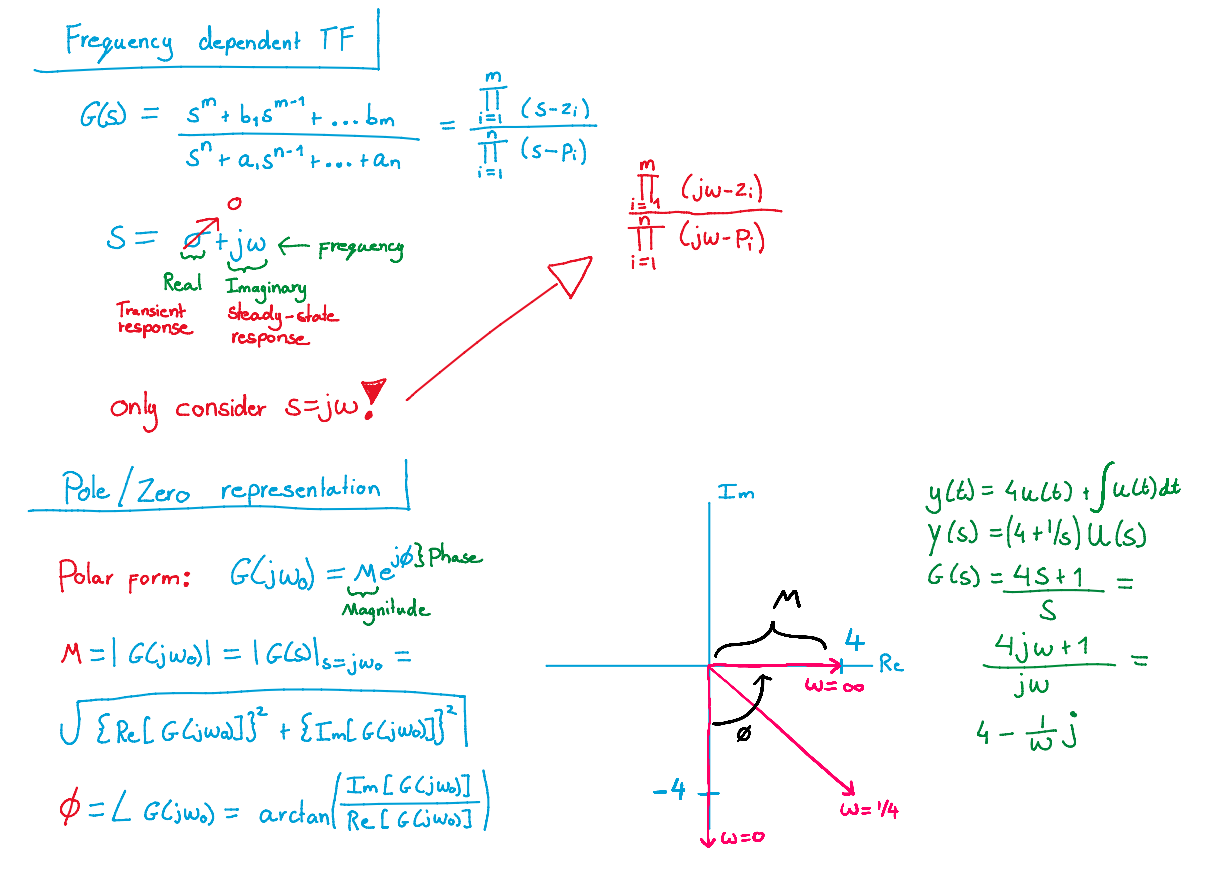 Frequency dependent TF
G(s) = (s^m + b₁s^(m-1) + ... bm) / (s^n + a₁s^(n-1) + ... + an) = ∏_(i=1)^m (s-zi) / ∏_(i=1)^n (s-pi)
∏_(i=1)^m (jω-zi) / ∏_(i=1)^n (jω-Pi)
0
S = σ + jω ← Frequency
Real Imaginary
Transient response
Steady-state response
Only consider s=jω!
Pole/Zero representation
Polar form: G(jω₀) = Me^(jϕ) } Phase
Magnitude
M = |G(jω₀)| = |G(s)|_(s=jω₀) =
√({Re[G(jω₀)]}² + {Im[G(jω₀)]}²)
ϕ = ∠ G(jω₀) = arctan(Im[G(jω₀)] / Re[G(jω₀)])
Im
M
4
Re
ω=∞
ϕ
-4
ω=1/4
ω=0
y(t) = 4u(t) + ∫u(t)dt
Y(s) = (4+1/s)U(s)
G(s) = (4s+1)/s =
(4jω+1)/jω =
4 - 1/ω j